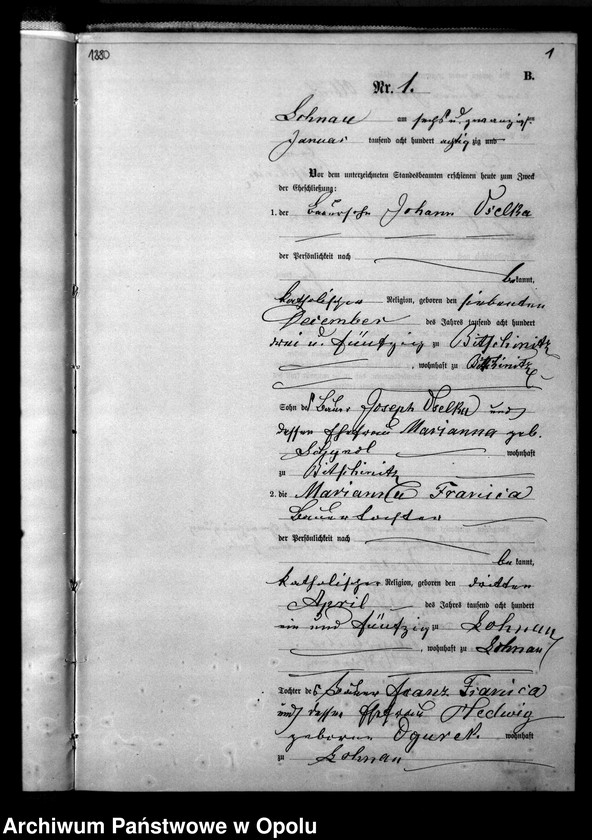 1880
1
B.
Nr. 1.
Lohnau am sechs u. zwanzigsten
Januar tausend acht hundert achtzig und
Vor dem unterzeichneten Standesbeamten erschienen heute zum Zweck
der Eheschließung:
1. der Johann Oselka
der Persönlichkeit nach
bekannt,
katholischer Religion, geboren den siebenten
December des Jahres tausend acht hundert
drei u. fünfzig zu Bitschinitz
, wohnhaft zu Bitschinitz
Sohn des Bauer Joseph Oselka und
dessen Ehefrau Marianna geb.
wohnhaft
zu Bitschinitz
2. die Marianna Franica
Bauertochter
der Persönlichkeit nach
bekannt,
katholischer Religion, geboren den dritten
April des Jahres tausend acht hundert
ein und fünfzig zu Lohnau
, wohnhaft zu Lohnau
Tochter des Bauer Franz Franica
und dessen Ehefrau Hedwig
geborene Ogurek wohnhaft
zu Lohnau
Archiwum Państwowe w Opolu